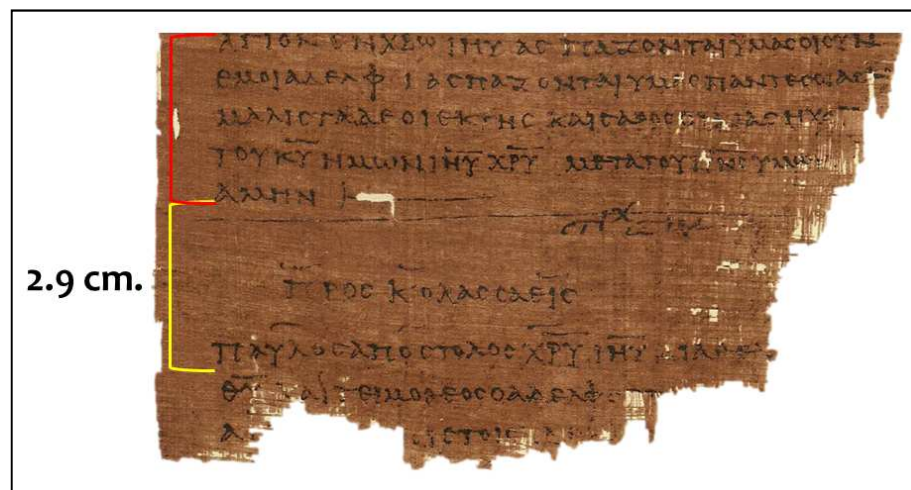 ΑΓΙΟΝ ΕΝ ΧΡΩ ΙΗΥ ΑϹΠΑΖΟΝΤΑΙ ΥΜΑϹ ΟΙ ϹΥΝ
ΕΜΟΙ ΑΔΕΛΦΟΙ ΑϹΠΑΖΟΝΤΑΙ ΥΜΑϹ ΠΑΝΤΕϹ ΟΙ
ΜΑΛΙϹΤΑ ΔΕ ΟΙ ΕΚ ΤΗϹ ΚΑΙϹΑΡΟϹ ΟΙΚΙΑϹ Η
ΤΟΥ ΚΥ ΗΜΩΝ ΙΗΥ ΧΡΥ ΜΕΤΑ ΤΟΥ ΠΝϹ
ΑΜΗΝ
ϹΤΙΧ
2.9 cm.
ΠΡΟϹ ΚΟΛΑϹϹΑΕΙϹ
ΠΑΥΛΟϹ ΑΠΟϹΤΟΛΟϹ ΧΡΥ ΙΗΥ ΔΙΑ
ΘΥ ΚΑΙ ΤΕΙΜΟΘΕΟϹ Ο ΑΔΕΛΦ